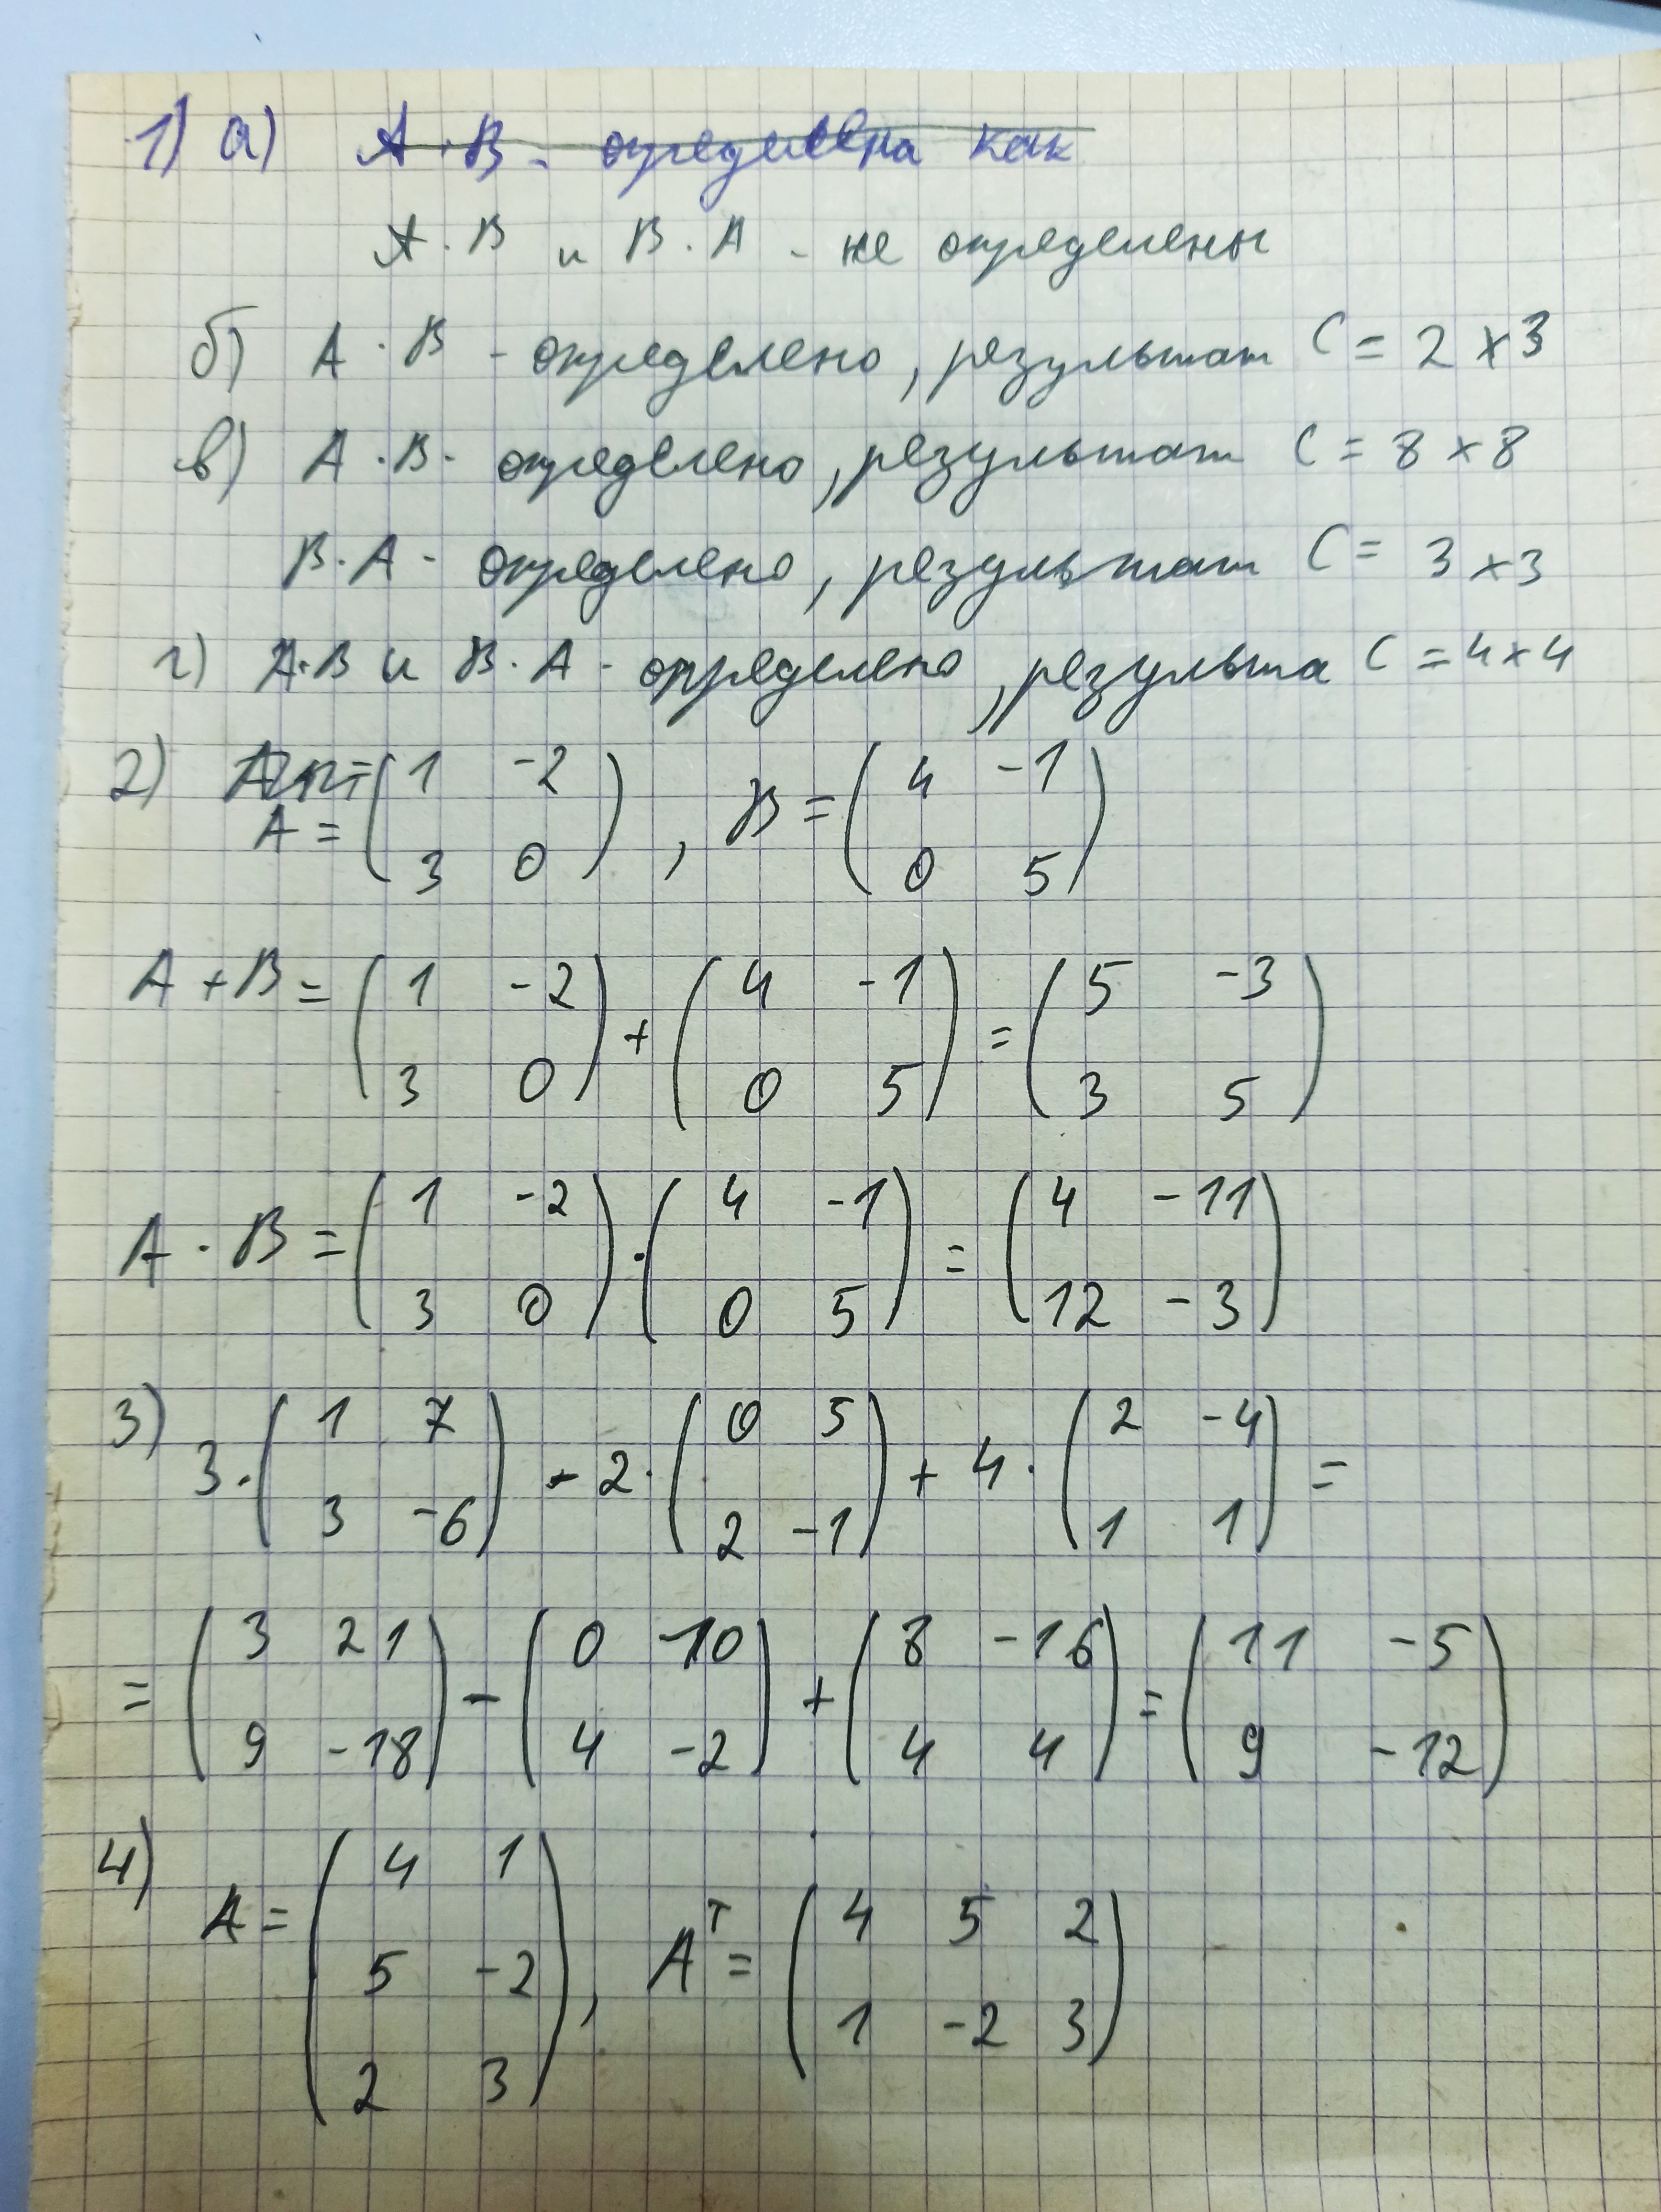 1) а) А·В - определена как
А·В и В·А - не определены
б) А·В - определено, результат С = 2 × 3
в) А·В - определено, результат С = 8 × 8
В·А - определено, результат С = 3 × 3
г) А·В и В·А - определено, результа С = 4 × 4
2) A = ( 1 -2 ; 3 0 ), B = ( 4 -1 ; 0 5 )
A + B = ( 1 -2 ; 3 0 ) + ( 4 -1 ; 0 5 ) = ( 5 -3 ; 3 5 )
A · B = ( 1 -2 ; 3 0 ) · ( 4 -1 ; 0 5 ) = ( 4 -11 ; 12 -3 )
3) 3 · ( 1 7 ; 3 -6 ) - 2 · ( 0 5 ; 2 -1 ) + 4 · ( 2 -4 ; 1 1 ) =
= ( 3 21 ; 9 -18 ) - ( 0 10 ; 4 -2 ) + ( 8 -16 ; 4 4 ) = ( 11 -5 ; 9 -12 )
4) A = ( 4 1 ; 5 -2 ; 2 3 ), Aᵀ = ( 4 5 2 ; 1 -2 3 )